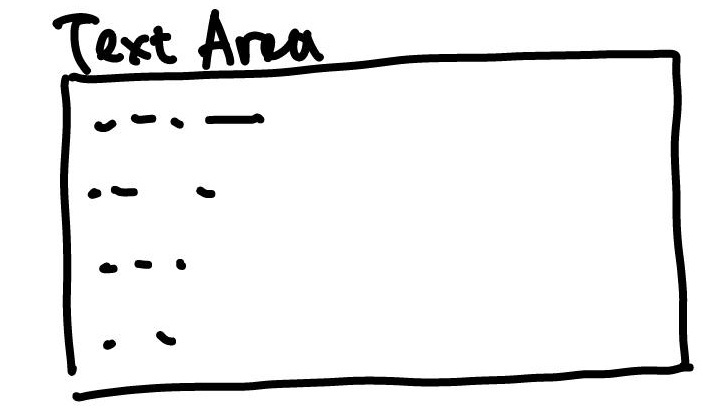 Text Area